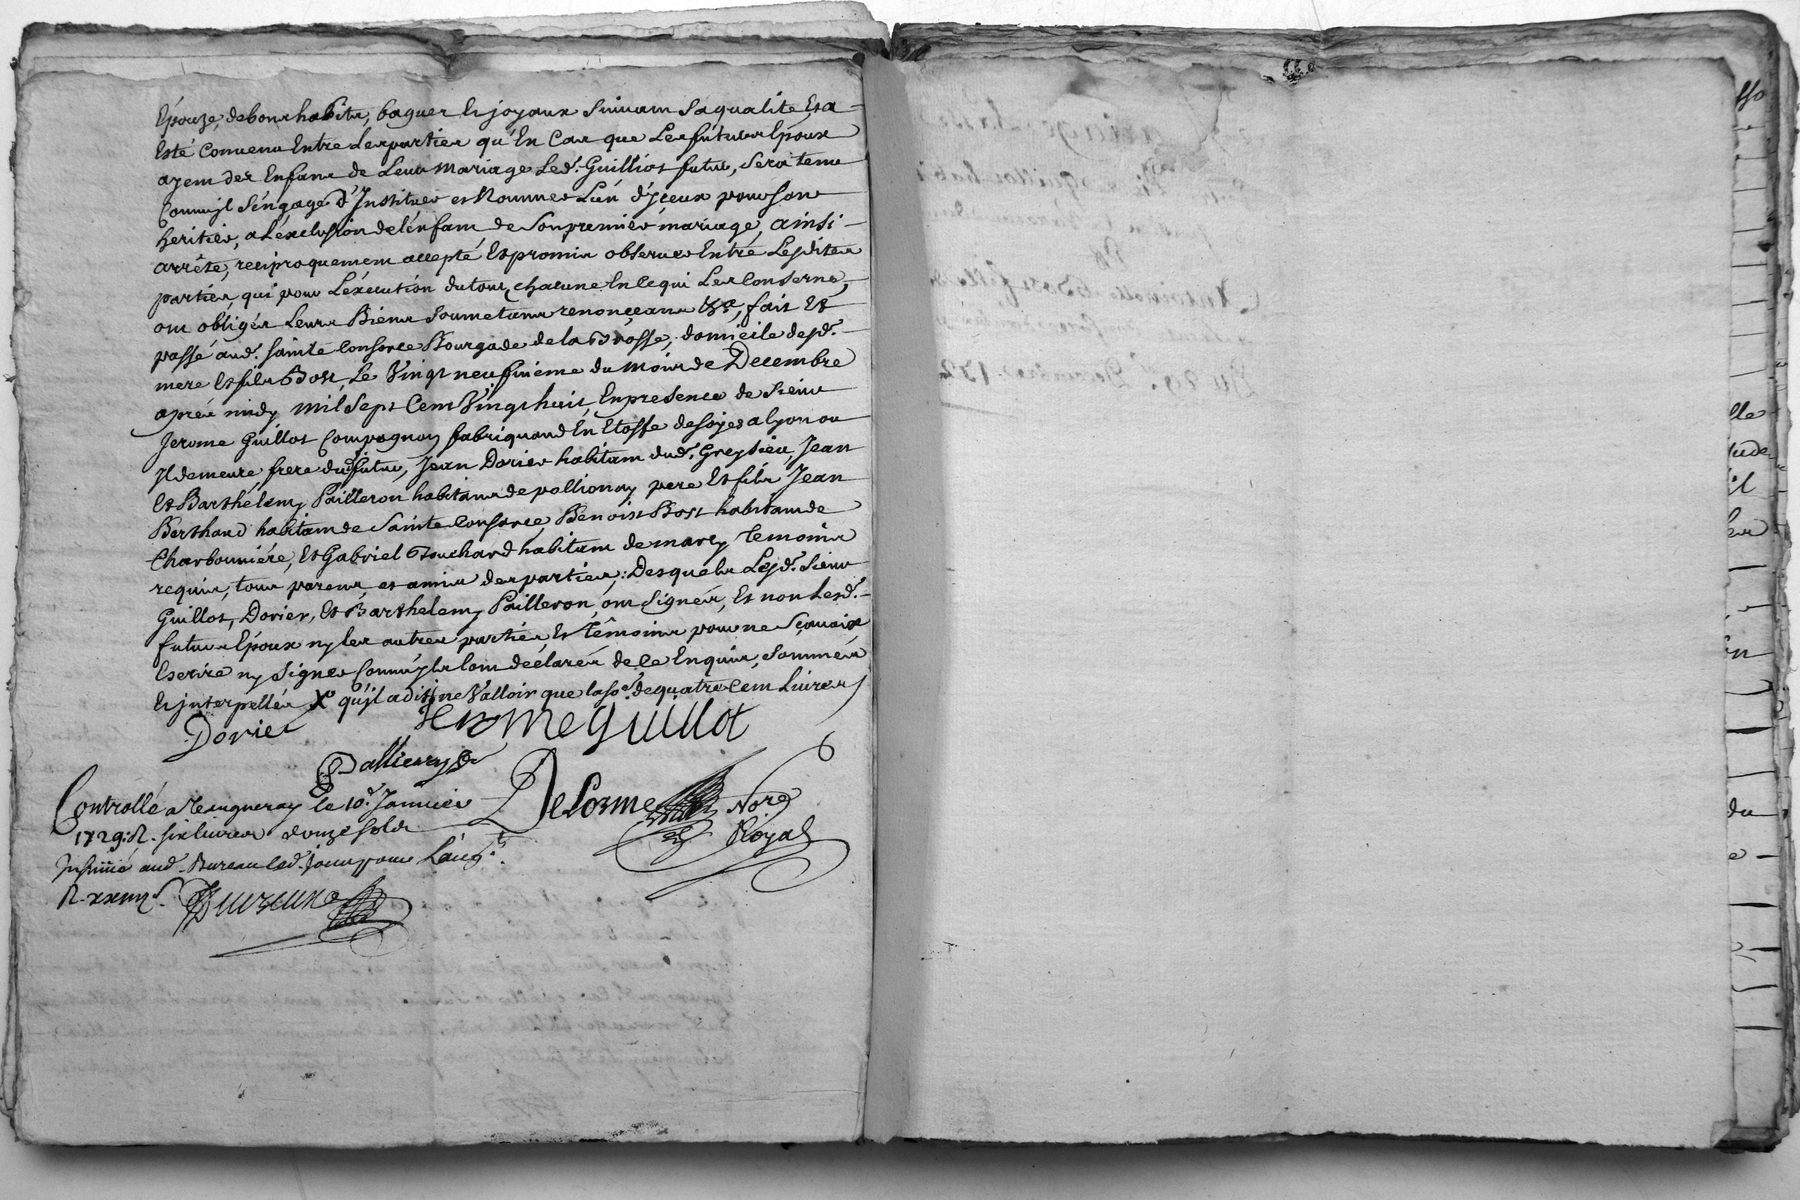 Epouze, debons habits, bagues et joyaux suivant saqualité, Et a
Esté convenu Entre Lesparties qu'En Cas que Lesfuturs Epoux
ayent des Enfans de Leur Mariage Led. Guilliot futur, Sera tenu
Comm'jl s'éngage d'Instituer et Nommer L'un d'jceux pour son
heritier, a L'éxclusion del'énfant de Sonpremier mariage, ainsi
arrêté, reciproquement accepté Et promis observer Entre Lesdites
parties, qui pour L'éxécution dutout, chacune En ce qui Les Conserne,
ont obligés Leurs Biens Soumetans renonçeans &a, fait Et
passé aud. sainte Consorce Bourgade de la Brosse, domicile desd.
mere Et fils Bost, Le Vingt neufvieme du mois de Decembre
après midy mil Sept Cent Vingt huit, En presence de Sieur
Jerome Guillot Compagnon fabriquand En Etoffe desoyes a Lyon ou
Jl demeure, frere dud. futur, Jean Dorier habitant dud. Greysieu, Jean
Et Barthélemy Pailleron habitans de pollionay pere Et fils Jean
Berthaud habitant de Sainte Consorce, Benoist Bost habitant de
Charbonniére, Et Gabriel Bouchard habitant de marcy temoins
requis, tous parens, et amis desparties; Desquels Lesd. Sieur
Guillot, Dorier, Et Barthelemy Pailleron, ont signés, Et non Lesd.
futurs Epoux ny les autres parties Et têmoins pour ne Sçavoir
Escrire ny signer Comm'jls l'ont déclarés de ce Enquis, Sommés
Et jnterpellés X qu'jl a dit ne Valloir que laso.e de quatre Cent Livres
Dorier
Jerome Guillot
Delorme
Nore
Royal
Controllé a le 10e Janvier
1729. R. six livres douze sols
Insinué aud. Bureau led. jour pour
Mariage
Guillot
Decembre